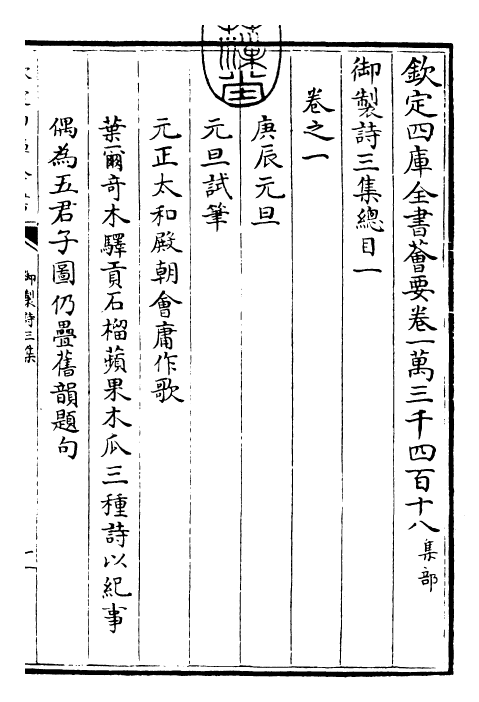 欽定四庫全書薈要卷一萬三千四百十八 集部
御製詩三集總目一
卷之一
庚辰元旦
元旦試筆
元正太和殿朝會庸作歌
葉爾奇木驛貢石榴蘋果木瓜三種詩以紀事
偶為五君子圖仍疊舊韻題句
御製詩三集